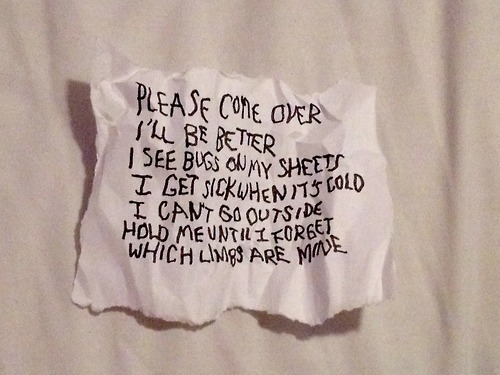 PLEASE COME OVER
I'LL BE BETTER
I SEE BUGS ON MY SHEETS
I GET SICK WHEN IT'S COLD
I CAN'T GO OUTSIDE
HOLD ME UNTIL I FORGET
WHICH LIMBS ARE MINE